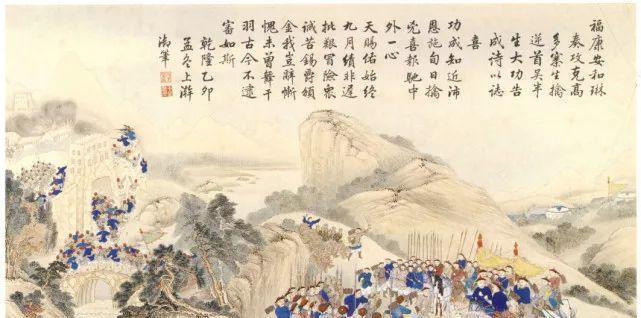 福康安和琳
奏攻克高
多寨生擒
逆首吳半
生大功告
成詩以誌
喜
功成知近沛
恩施旬日擒
兇喜報馳中
外一心
天賜佑始終
九月績非遲
批艱冒險衆
誠苦錫爵頒
金我豈辭慚
愧未曾舞干
羽古今不逮
審如斯
乾隆乙卯
孟冬上澣
御筆